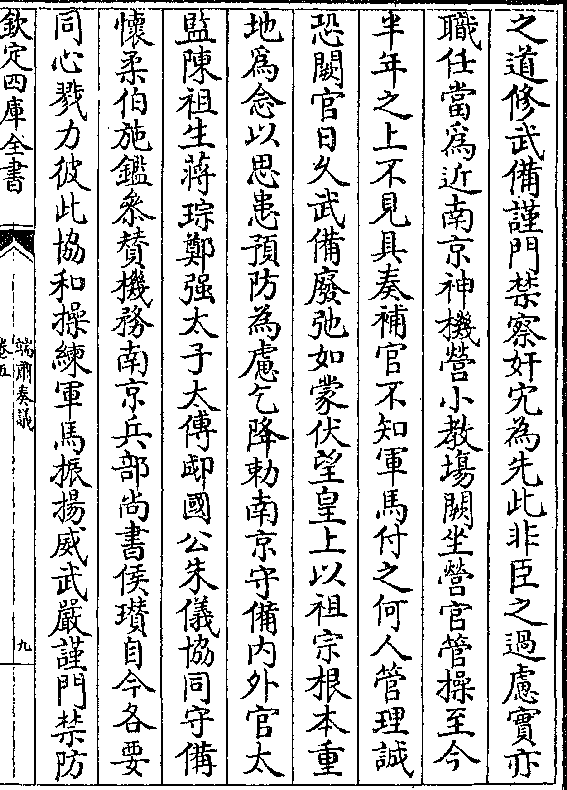 之道修武備謹門禁察奸宄為先此非臣之過慮實亦
職任當爲近南京神機營小教場闕坐營官管操至今
半年之上不見具奏補官不知軍馬付之何人管理誠
恐闕官日久武備廢弛如蒙伏望皇上以祖宗根本重
地爲念以思患預防為慮乞降勅南京守備内外官太
監陳祖生蔣琮鄭强太子太傅郕國公朱儀協同守備
懷柔伯施鑑叅賛機務南京兵部尚書侯瓚自今各要
同心戮力彼此協和操練軍馬振揚威武嚴謹門禁防
欽定四庫全書
端肅奏議
卷五
九